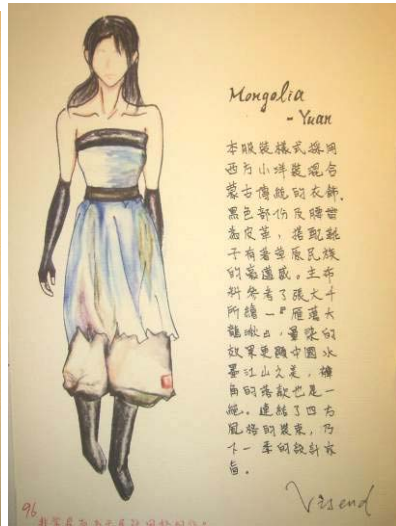 Mongolia
- Yuan
本服裝樣式採用
西方小洋裝混合
蒙古傳統的衣飾。
黑色部份及腰帶
為皮革，搭配靴
子有著草原民族
的 感。主布
料參考了張大千
所繪一『 蕩大
龍湫』，暈染的
效果更顯中國水
墨江山之美，褲
角的落款也是一
絕。連結了四方
風格的裝束，乃
下一季的設計宗
旨。
Visend
96